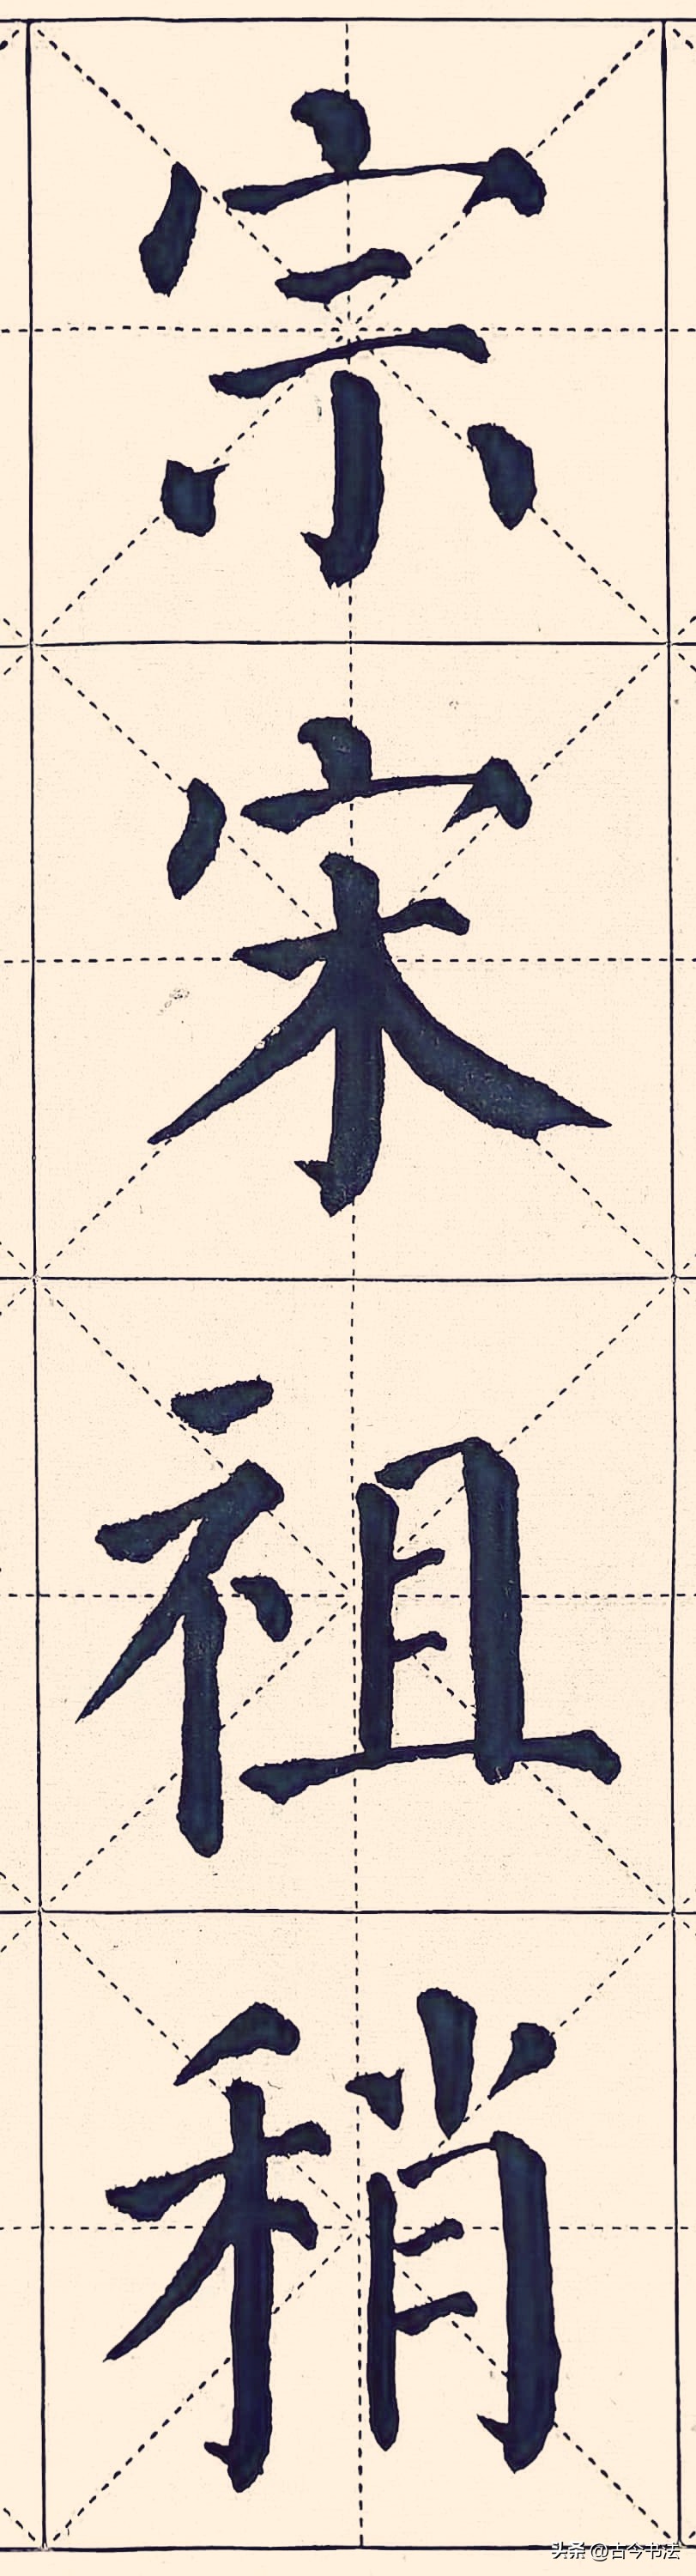 宗
宋
祖
稍
头条 @古今书法